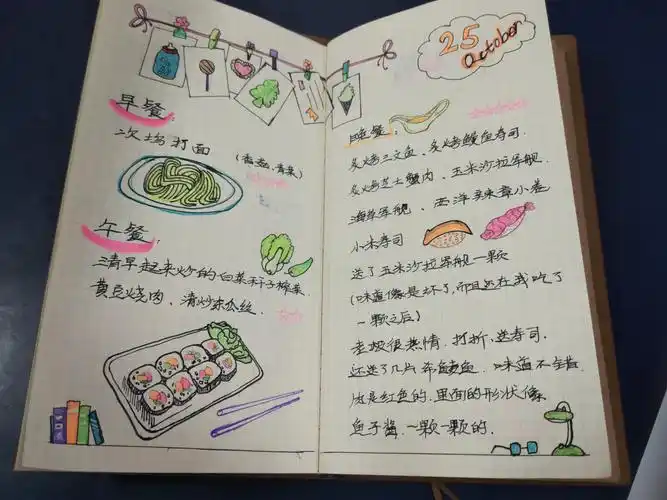 早餐:
次坞打面
(香菇、青菜)
午餐:
清早起来炒的白菜干子榨菜
黄豆烧肉、清炒土豆丝.
25
October
晚餐:
炙烤三文鱼、炙烤鳗鱼寿司.
炙烤芝士蟹肉、玉米沙拉军舰
海草军舰、西洋美味章小卷
小米寿司
送了玉米沙拉军舰一颗
(味道像是坏了,而且还在我吃了
一颗之后)
老板很热情.打折、送寿司.
还送了几片 味道不
皮是红色的.里面的形状像
鱼子酱.一颗一颗的.